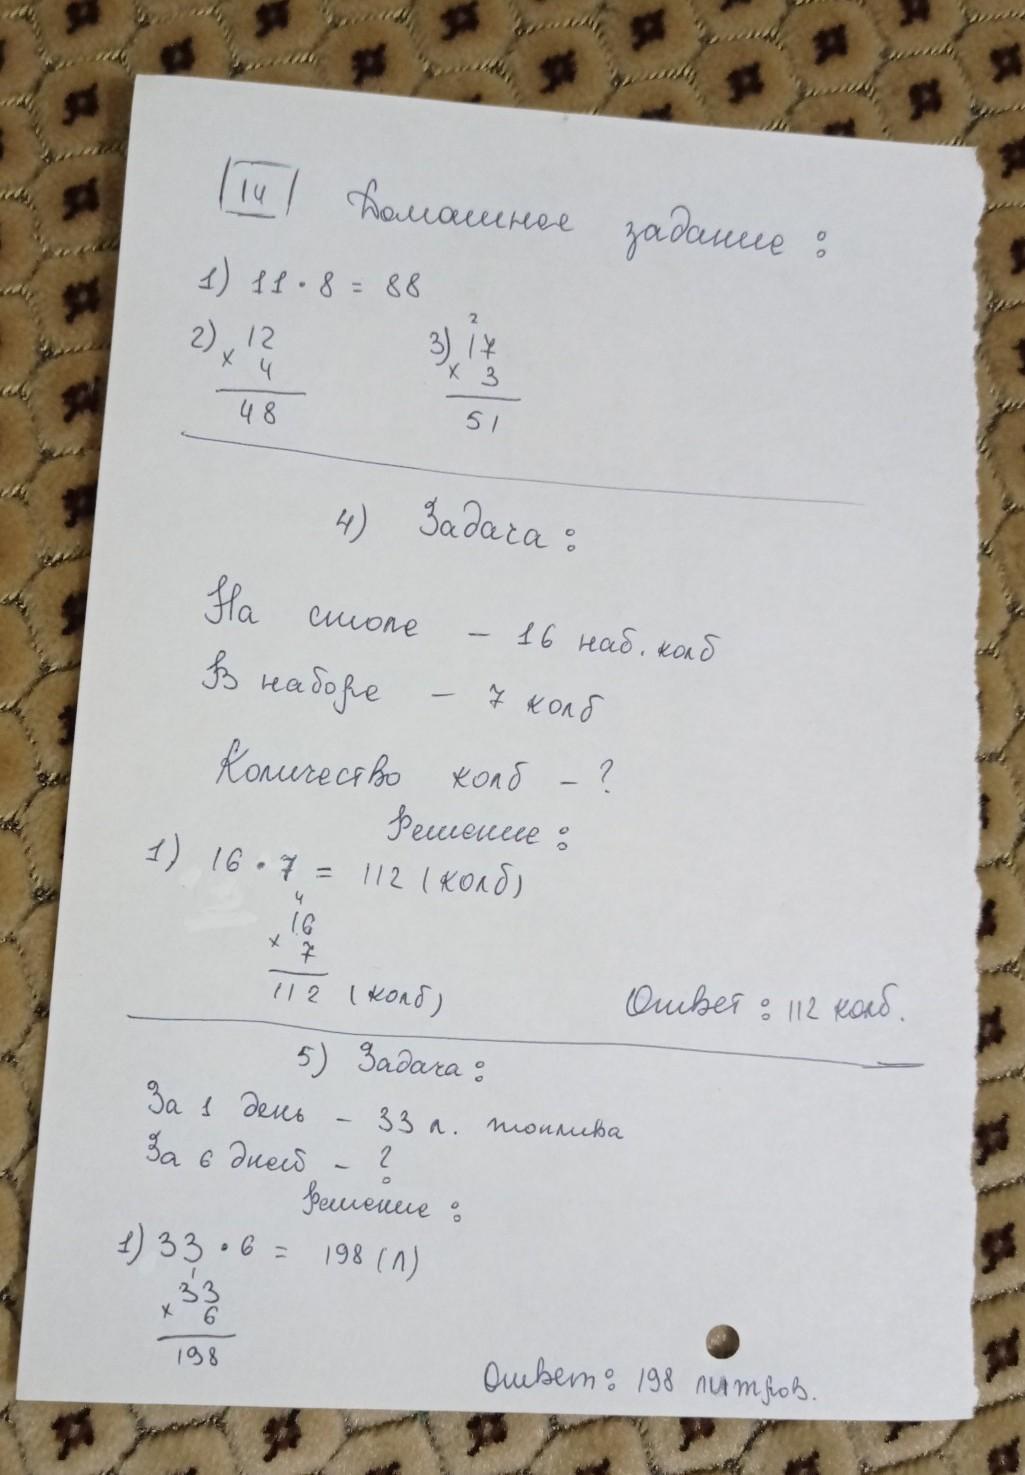 14 Домашнее задание:
1) 11 · 8 = 88
2) 12 3) 2 17
× 4 × 3
48 51
4) Задача:
На столе – 16 наб. колб
В наборе – 7 колб
Количество колб – ?
Решение:
1) 16 · 7 = 112 (колб)
4
16
× 7
112 (колб) Ответ: 112 колб.
5) Задача:
За 1 день – 33 л. топлива
За 6 дней – ?
Решение:
1) 33 · 6 = 198 (л)
1
33
× 6
198
Ответ: 198 литров.